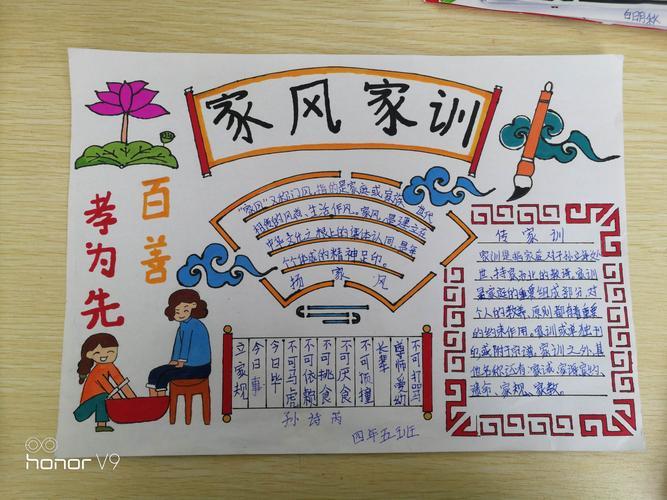 白明秋
家风家训
百善
孝为先
"家风"又称门风,指的是家庭或家族世代
相传的风尚、生活作风。家风,是建立在
中华文化之根上的集体认同,是每
个个体成的精神足印。
扬家风
传家训
家训是指家庭对子孙立身处
世、持家治业的教诲。家训
是家庭的重要组成部分,对
个人的教养、原则都有着重要
的约束作用。家训或单独刊
印或附于宗谱。家训之外,其
他名称还有家诫、家诲、家约、
遗命、家规、家教。
不可打骂
尊师爱幼
长辈
不可顶撞
不可厌食
不可挑食
不可依赖
不可马虎
今日毕
今日事
立家规
孙诗芮
四年五班
honor V9